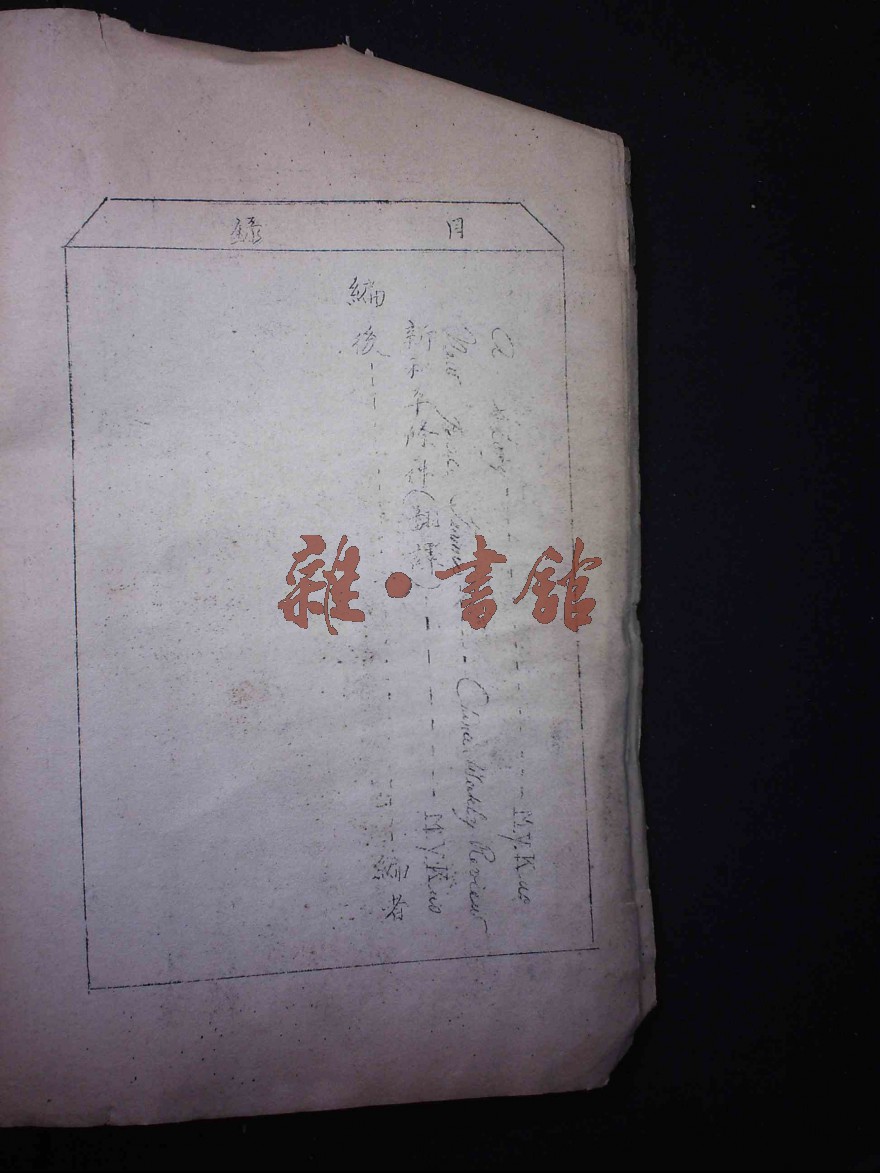 目錄
A ---------- M.Y.Kuo
New Peace Terms ---- China Weekly Review
新和平條件(翻譯)-------- M.Y.Kuo
編後---------- 編者
雜·書館